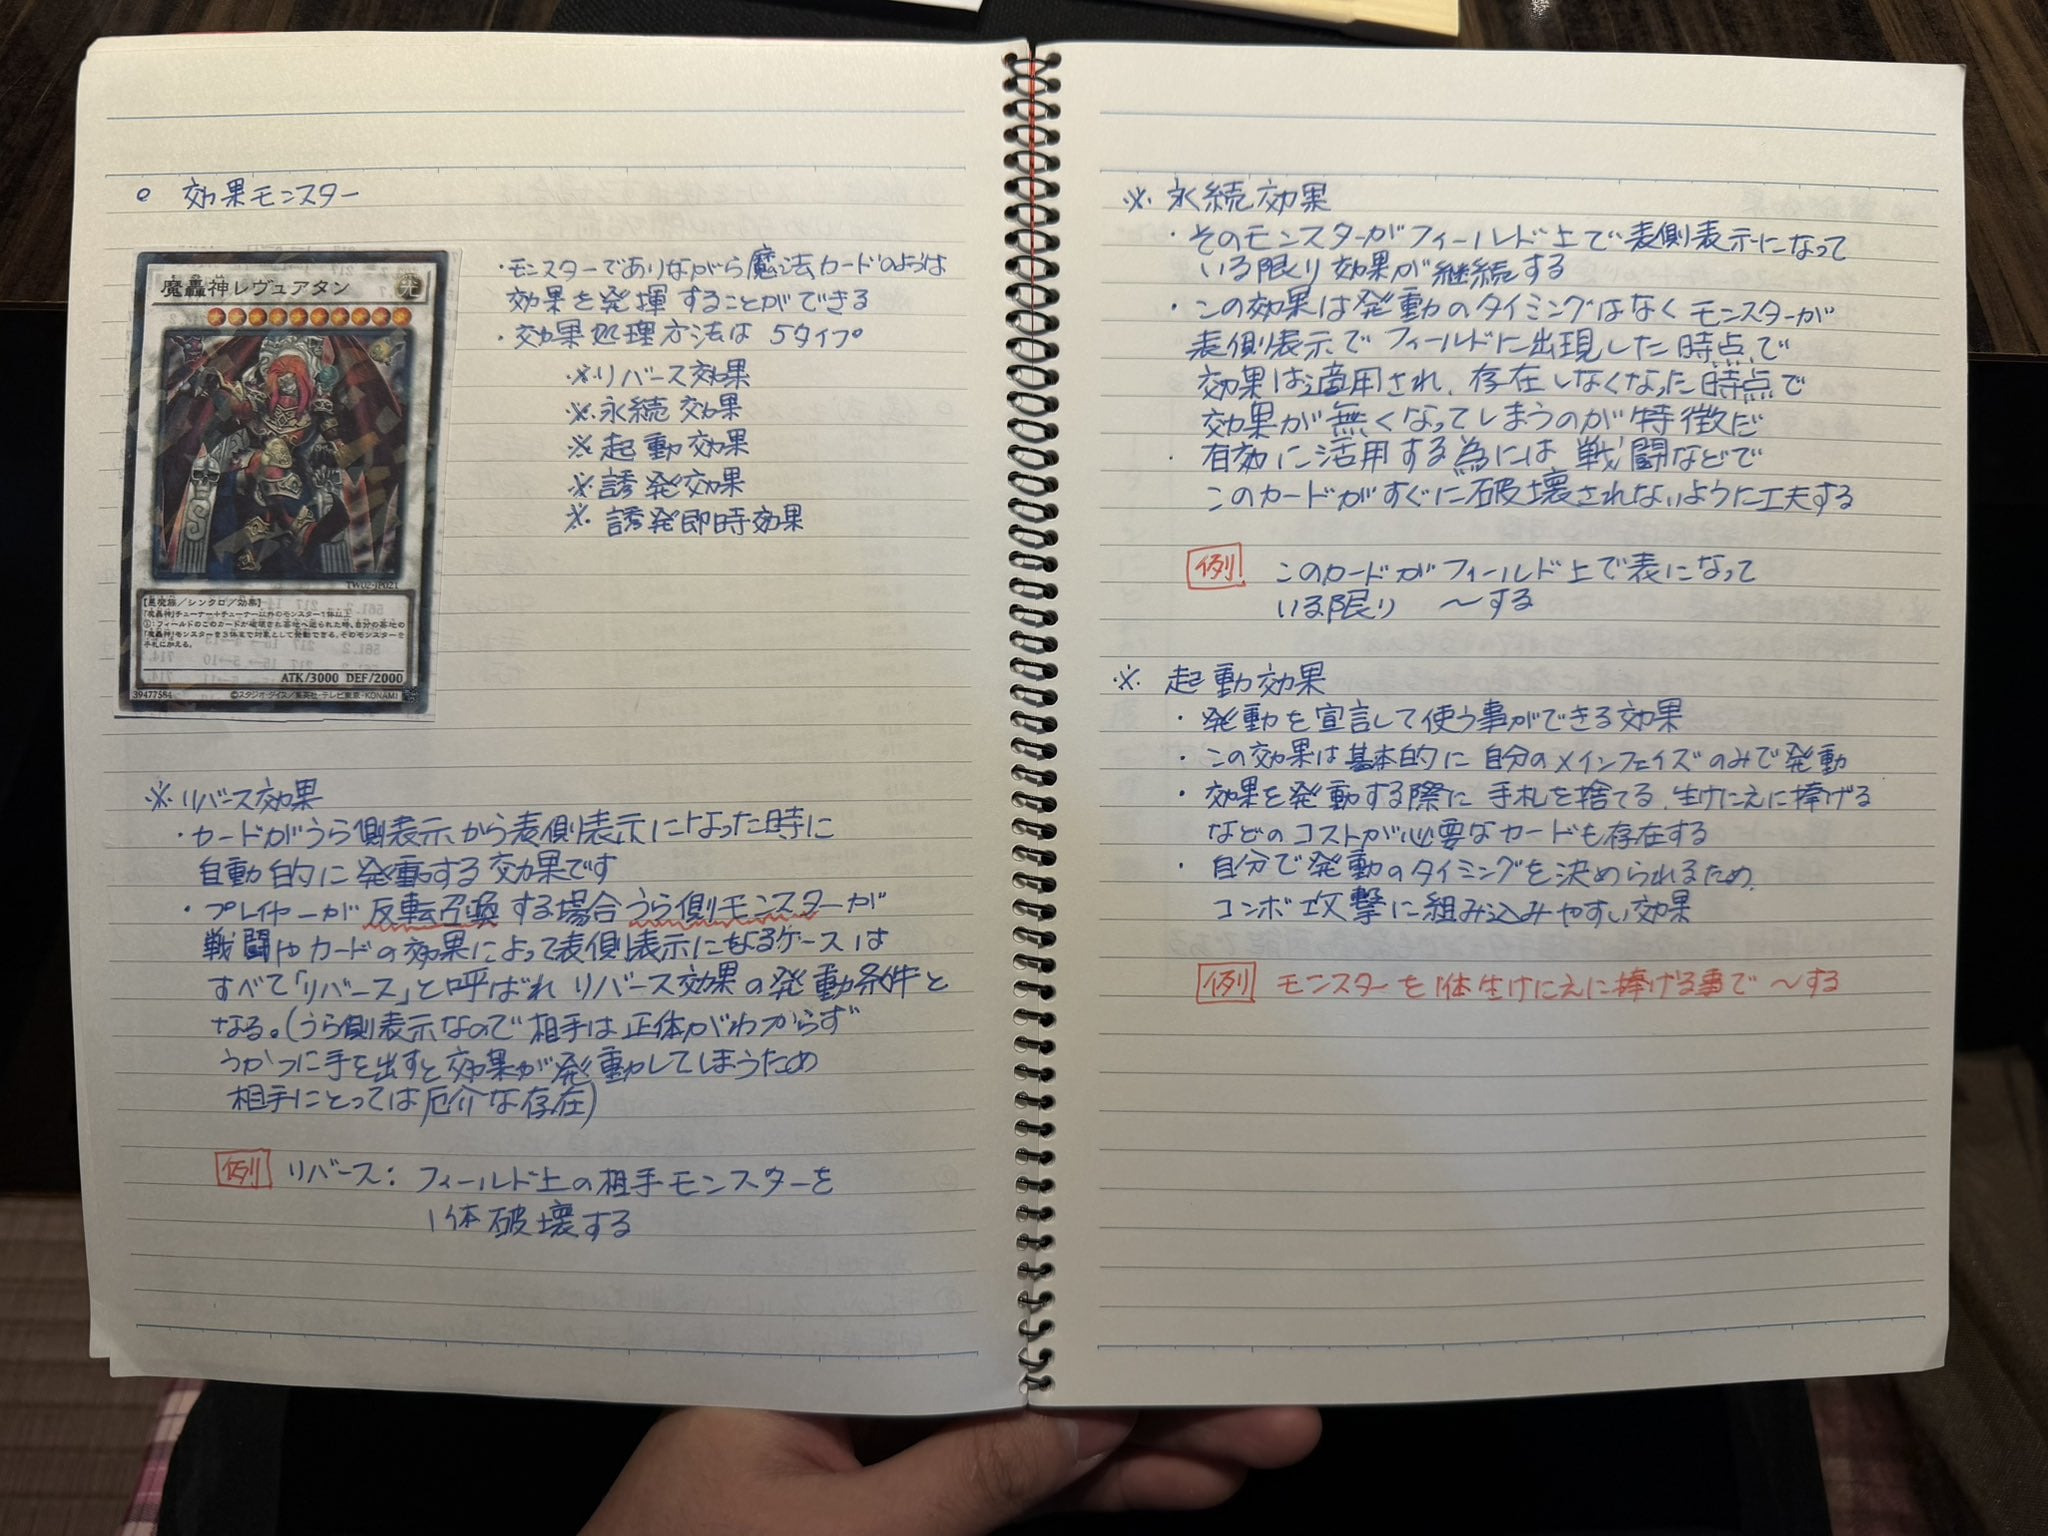 ○ 効果モンスター
魔轟神レヴュアタン
光
TW02-JP021
【悪魔族／シンクロ／効果】
「魔轟神」チューナー＋チューナー以外のモンスター1体以上
①：フィールドのこのカードが破壊され墓地へ送られた時、自分の墓地の
「魔轟神」モンスターを3体まで対象として発動できる。そのモンスターを
手札に加える。
ATK/3000 DEF/2000
39477584 ©スタジオ・ダイス／集英社・テレビ東京・KONAMI
・モンスターでありながら魔法カードのような
効果を発揮することができる
・効果処理方法は 5タイプ
※リバース効果
※永続効果
※起動効果
※誘発効果
※誘発即時効果
※リバース効果
・カードがうら側表示から表側表示になった時に
自動的に発動する効果です
・プレイヤーが反転召喚する場合うら側モンスターが
戦闘やカードの効果によって表側表示になるケースは
すべて「リバース」と呼ばれ リバース効果の発動条件と
なる。(うら側表示なので相手は正体がわからず
うかつに手を出すと効果が発動してしまうため
相手にとっては厄介な存在)
例 リバース: フィールド上の相手モンスターを
1体破壊する
※ 永続効果
・そのモンスターがフィールド上で表側表示になって
いる限り効果が継続する
・この効果は発動のタイミングはなくモンスターが
表側表示でフィールドに出現した時点で
効果は適用され、存在しなくなった時点で
効果が無くなってしまうのが特徴だ
・有効に活用する為には戦闘などで
このカードがすぐに破壊されないように工夫する
例 このカードがフィールド上で表になって
いる限り 〜する
※ 起動効果
・発動を宣言して使う事ができる効果
・この効果は基本的に自分のメインフェイズのみで発動
・効果を発動する際に手札を捨てる、生けにえに捧げる
などのコストが必要なカードも存在する
・自分で発動のタイミングを決められるため、
コンボ攻撃に組み込みやすい効果
例 モンスターを1体生けにえに捧げる事で 〜する